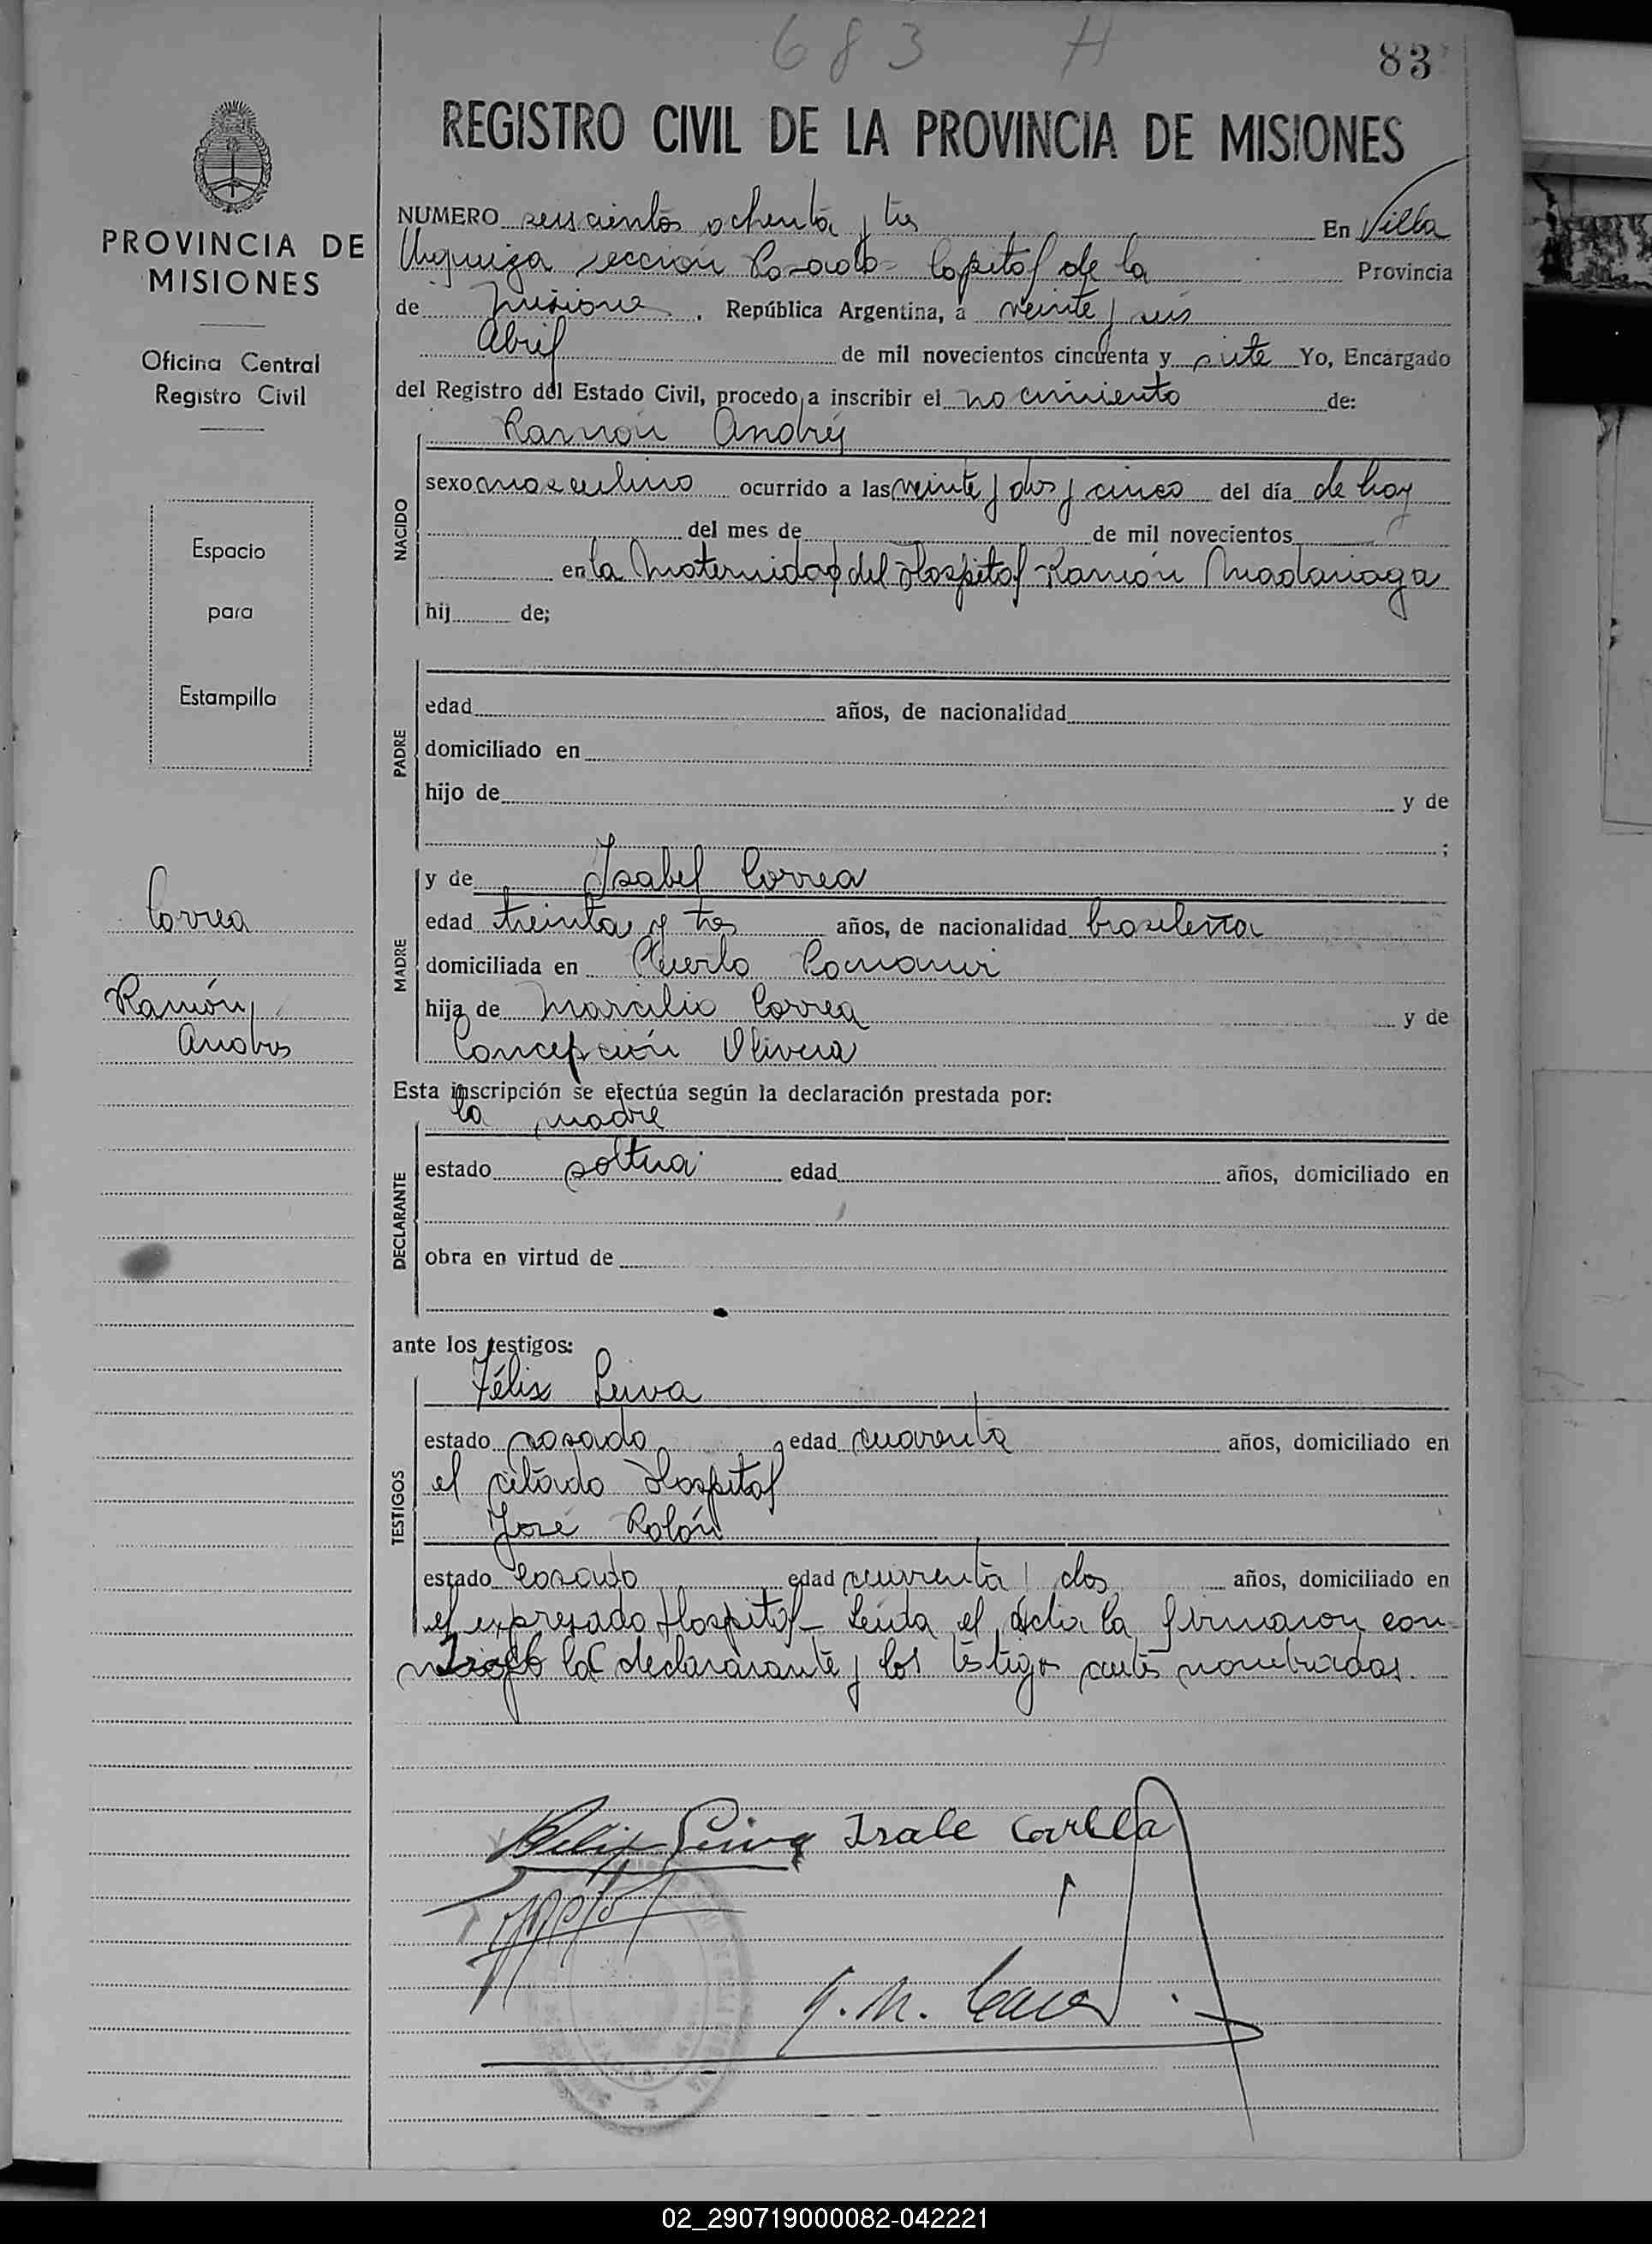 683 H
83
REGISTRO CIVIL DE LA PROVINCIA DE MISIONES
PROVINCIA DE
MISIONES
Oficina Central
Registro Civil
Espacio
para
Estampilla
Correa
Ramón
Andres
NUMERO seiscientos ochenta y tres En Villa
Urquiza sección Posadas Capital de la Provincia
de Misiones, República Argentina, a veinte y seis
Abril de mil novecientos cincuenta y siete Yo, Encargado
del Registro del Estado Civil, procedo a inscribir el nacimiento de:
Ramón Andrés
NACIDO
sexo masculino ocurrido a las veinte y dos y cinco del día de hoy
del mes de de mil novecientos
en la Maternidad del Hospital Ramón Madariaga
hij de;
PADRE
edad años, de nacionalidad
domiciliado en
hijo de y de
;
MADRE
y de Isabel Correa
edad treinta y tres años, de nacionalidad brasileña
domiciliada en Puerto
hija de Marcilio Correa y de
Concepción Olivera
Esta inscripción se efectúa según la declaración prestada por:
la madre
DECLARANTE
estado soltera edad años, domiciliado en
obra en virtud de
ante los testigos:
TESTIGOS
Félix Leiva
estado casado edad cuarenta años, domiciliado en
el citado Hospital
José Rolón
estado casado edad cuarenta y dos años, domiciliado en
el expresado Hospital- Leída el acta la firmaron con
la declararante y los testigos antes nombrados.
Felix Leiva
02_290719000082-042221